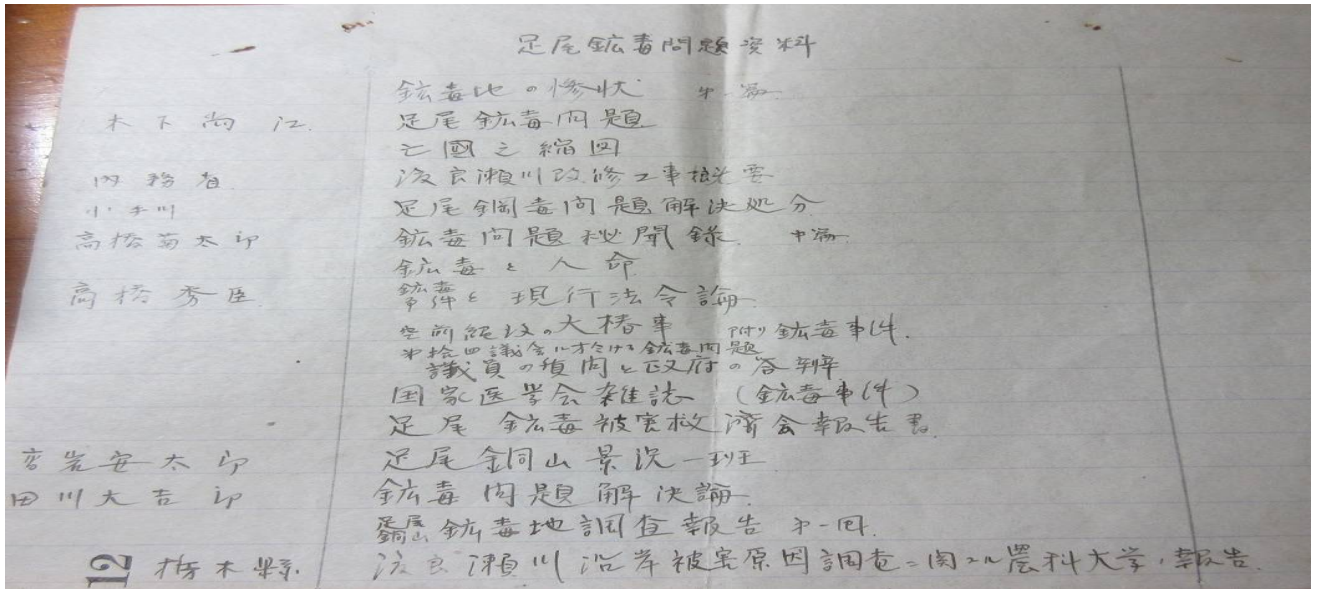 足尾鉱毒問題資料
鉱毒地の惨状 第一編
木下尚江 足尾鉱毒問題
亡國之縮図
内務省 渡良瀬川改修工事概要
小手川 足尾鉱毒問題解決処分
高橋菊太郎 鉱毒問題秘聞録 中編
鉱毒と人命
高橋秀臣 鉱毒事件と現行法令論
空前絶後の大椿事 附リ鉱毒事件
第拾四議会に於ける鉱毒問題
議員の質問と政府の答辯
国家医学会雑誌 (鉱毒事件)
足尾鉱毒被害救済会報告書
岩安太郎 足尾銅山景況一班
田川大吉郎 鉱毒問題解決論
足尾銅山鉱毒地調査報告 第一回
12 栃木県 渡良瀬川沿岸被害原因調査ニ関スル農科大学ノ報告